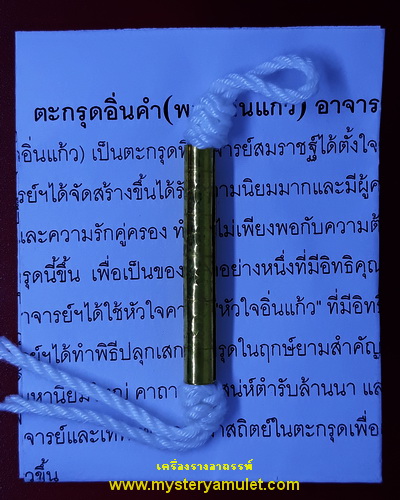 ตะกรุดอิ่นคำ(พ อิ่นแก้ว) อาจาร
อิ่นแก้ว) เป็นตะกรุดที่ อาจารย์สมราชฐ์ได้ตั้งใจ
รย์ฯได้จัดสร้างขึ้นได้รับ ความนิยมมากและมีผู้ค
และความรักคู่ครอง ทำ ไม่เพียงพอกับความต้
รุดนี้ขึ้น เพื่อเป็นของ อย่างหนึ่งที่มีอิทธิคุณ
าจารย์ฯได้ใช้หัวใจคา "หัวใจอิ่นแก้ว" ที่มีอิทธิ
ย์ฯได้ทำพิธีปลุกเสกตะกรุดในฤกษ์ยามสำคัญ
มหานิยมใหญ่ คาถา เสน่ห์ตำรับล้านนา แล
จารย์และเท สถิตย์ในตะกรุดเพื่อ
วขึ้น
เครื่องรางอาถรรพ์
www.mysteryamulet.com